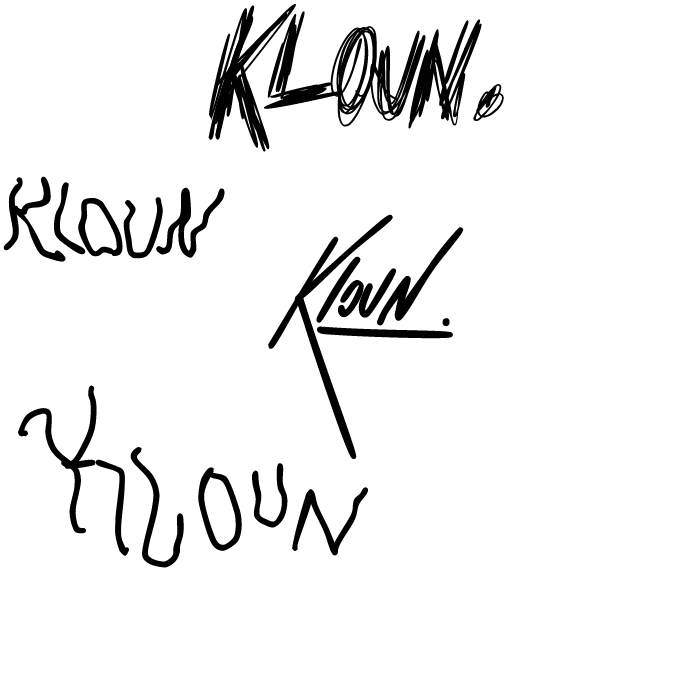 KLOUN.
KLOUN
KLOUN.
KLOUN